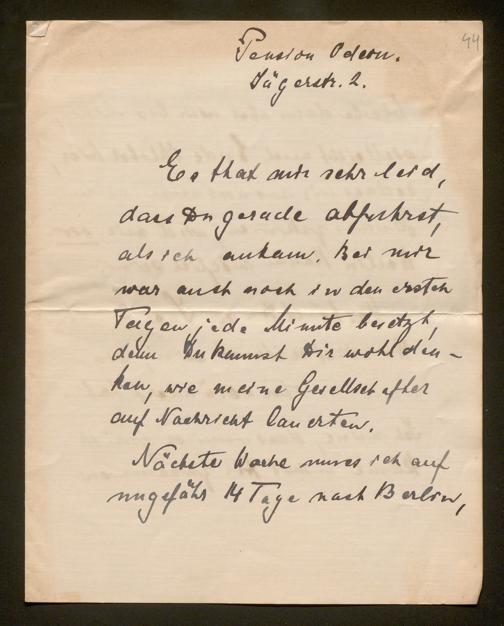 44
Pension Odeon.
Jägerstr. 2.
Es that mir sehr leid,
dass Du gerade abfuhrst,
als ich ankam. Bei mir
war auch noch in den ersten
Tagen jede Minute besetzt,
denn Du kannst Dir wohl den-
ken, wie meine Gesellschafter
auf Nachricht lauerten.
Nächste Woche muss ich auf
ungefähr 14 Tage nach Berlin,